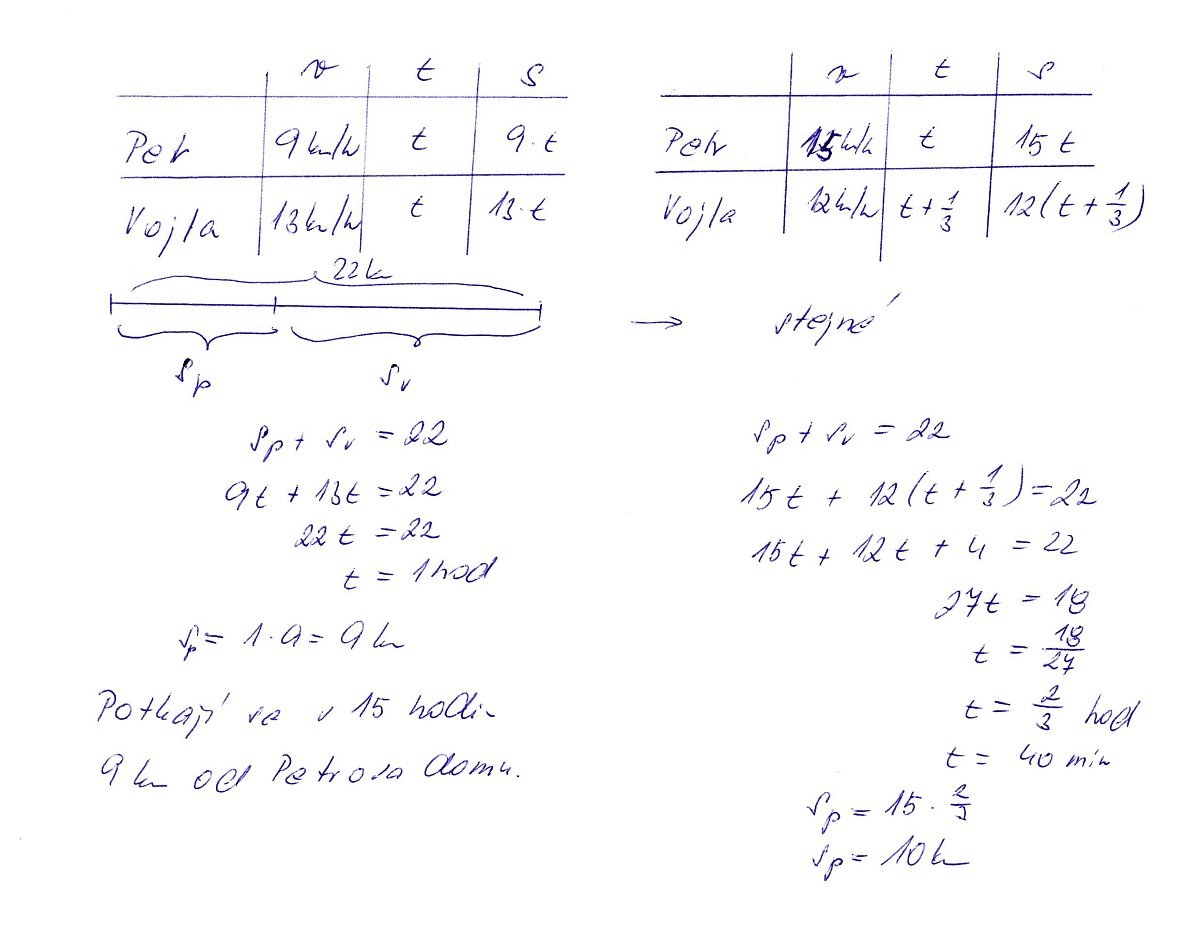 v t s
Petr 9 km/h t 9·t
Vojta 13 km/h t 13·t
22 km
s_p s_v
s_p + s_v = 22
9t + 13t = 22
22t = 22
t = 1 hod
s_p = 1·9 = 9 km
Potkají se v 15 hodin
9 km od Petrova domu.
v t s
Petr 15 km/h t 15 t
Vojta 12 km/h t + 1/3 12(t + 1/3)
→ stejné
s_p + s_v = 22
15t + 12(t + 1/3) = 22
15t + 12t + 4 = 22
27t = 18
t = 18/27
t = 2/3 hod
t = 40 min
s_p = 15 · 2/3
s_p = 10 km